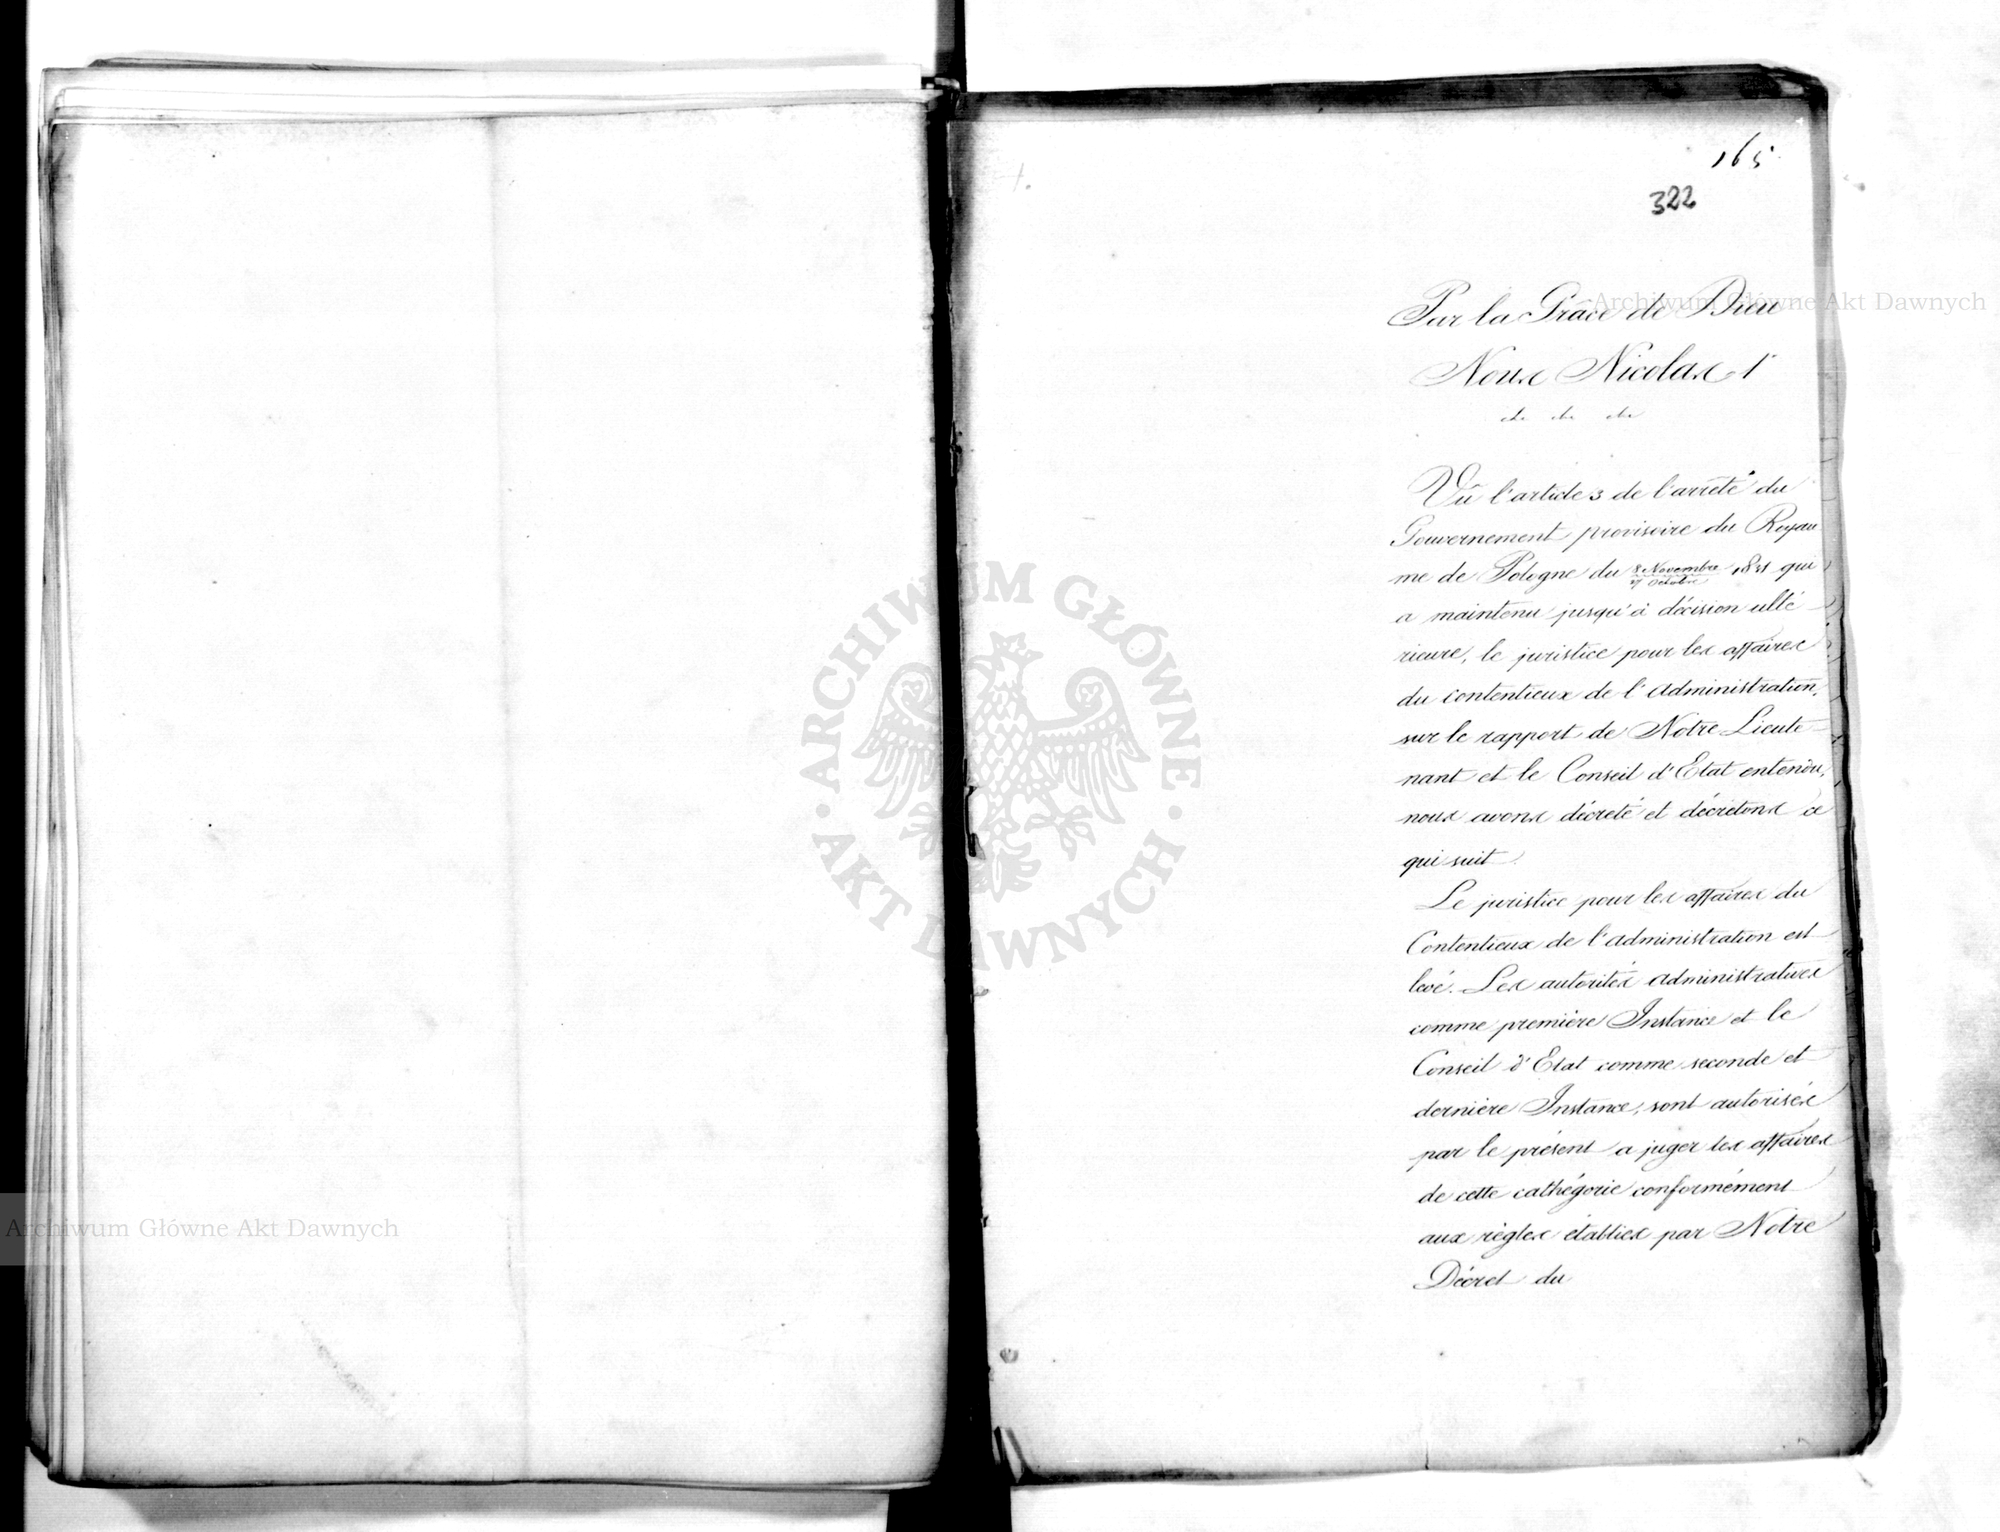 165
322
Par la Grâce de Dieu
Nous Nicolas 1r
Vû l'article 3 de l'arrêté du
Gouvernement provisoire du Royau
me de Pologne du 8 Novembre / 27 Octobre 1831 qui
a maintenu jusqu'à décision ulté-
rieure, le juristice pour les affaires
du contentieux de l'Administration,
sur le rapport de Notre Lieute-
nant et le Conseil d'Etat entendu,
nous avons décreté et décretons ce
qui suit.
Le juristice pour les affaires du
Contentieux de l'administration est
levé. Les autorités administratives
comme première Instance et le
Conseil d'Etat comme seconde et
dernière Instance, sont autorisés
par le présent a juger les affaires
de cette cathégorie conformément
aux règles établies par Notre
Décret du
Archiwum Główne Akt Dawnych
ARCHIWUM GŁÓWNE · AKT DAWNYCH ·
Archiwum Główne Akt Dawnych